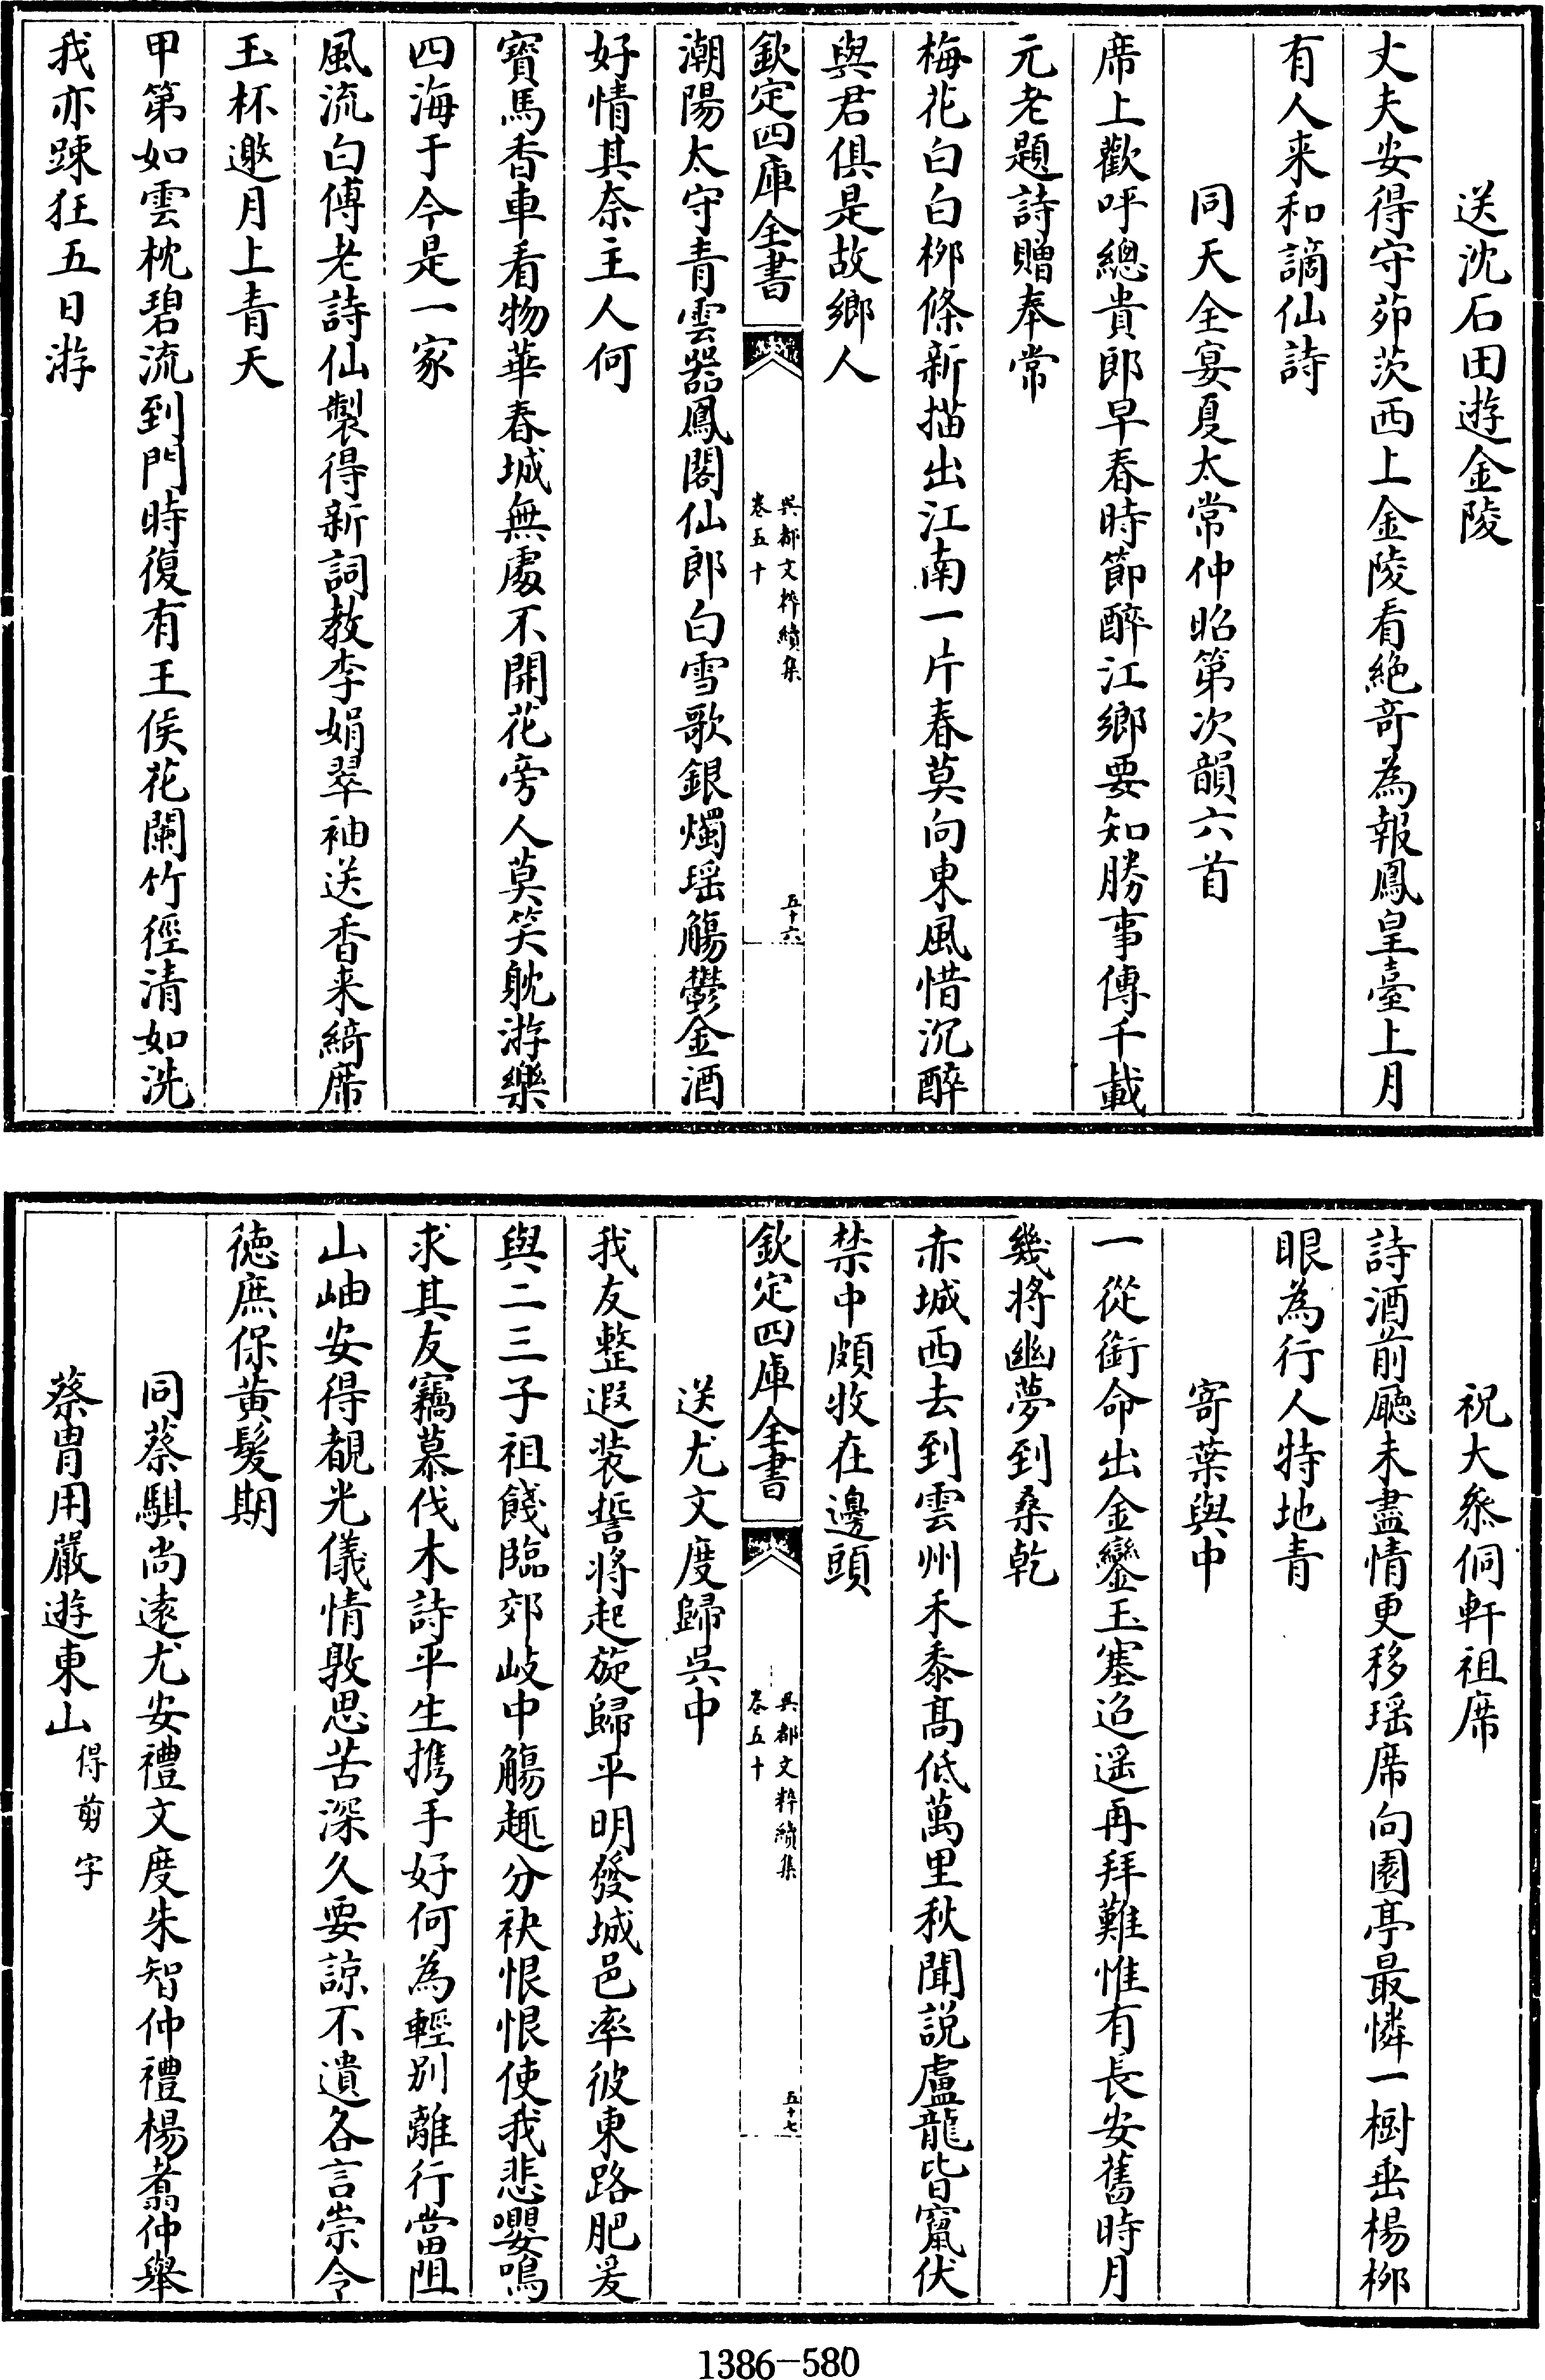 送沈石田遊金陵
丈夫安得守茆茨西上金陵看絶竒為報鳳皇臺上月
有人来和謫仙詩
同天全宴夏太常仲昭第次韻六首
席上歡呼總貴郎早春時節醉江鄉要知勝事傳千載
元老題詩贈奉常
梅花白白桞條新描出江南一片春莫向東風惜沉醉
與君俱是故鄉人
欽定四庫全書
吳都文粹續集
卷五十
五十六
潮陽太守青雲器鳳閣仙郎白雪歌銀燭瑶觴鬱金酒
好情其奈主人何
寶馬香車看物華春城無處不開花旁人莫笑躭游樂
四海于今是一家
風流白傅老詩仙製得新詞教李娟翠袖送香来綺席
玉杯邀月上青天
甲第如雲枕碧流到門時復有王侯花闌竹徑清如洗
我亦踈狂五日游
祝大叅侗軒祖席
詩酒前廳未盡情更移瑶席向園亭最憐一樹垂楊桞
眼為行人特地青
寄葉與中
一從銜命出金鑾玉塞迢遥再拜難惟有長安舊時月
幾將幽夢到桑乾
赤城西去到雲州禾黍髙低萬里秋聞説盧龍皆竄伏
禁中頗牧在邊頭
欽定四庫全書
吳都文粹續集
卷五十
五十七
送尤文度歸吳中
我友整遐装誓將起旋歸平明發城邑率彼東路肥爰
與二三子祖餞臨郊岐中觴趣分袂恨恨使我悲嚶鳴
求其友竊慕伐木詩平生携手好何為輕别離行當阻
山岫安得覩光儀情敦思苦深久要諒不遺各言崇令
徳庶保黄髮期
同蔡騏尚遠尤安禮文度朱智仲禮楊翥仲舉
蔡胄用嚴遊東山得剪字
1386-580